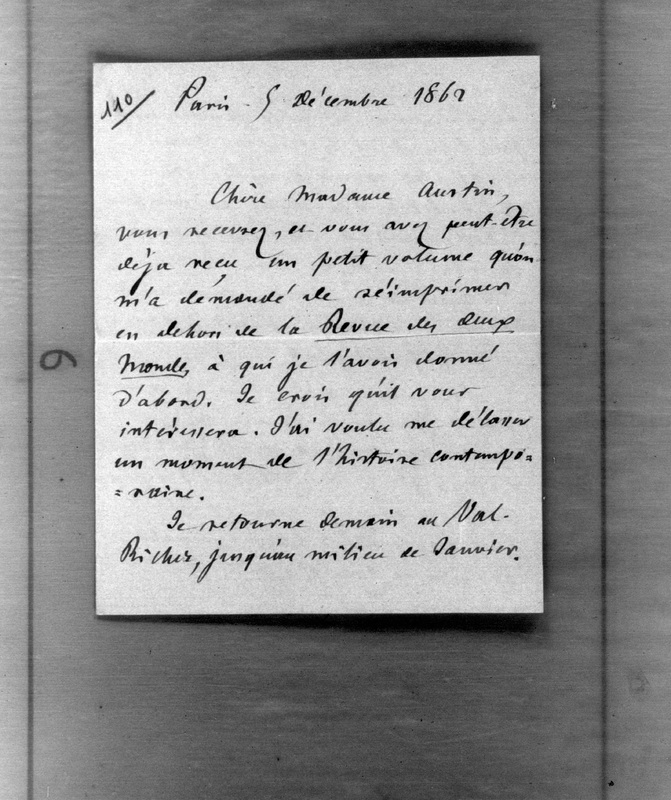 110
Paris 5 Décembre 1862
Chère Madame Austin,
vous recevrez, et vous avez peut-être
déja reçu un petit volume qu'on
m'a demandé de réimprimer
en dehors de la Revue des deux
Mondes, à qui je l'avois donné
d'abord. Je crois qu'il vous
intéressera. J'ai voulu me délasser
un moment de l'histoire contempo=
=raine.
Je retourne demain au Val-
Richer, jusqu'au milieu de Janvier.
6